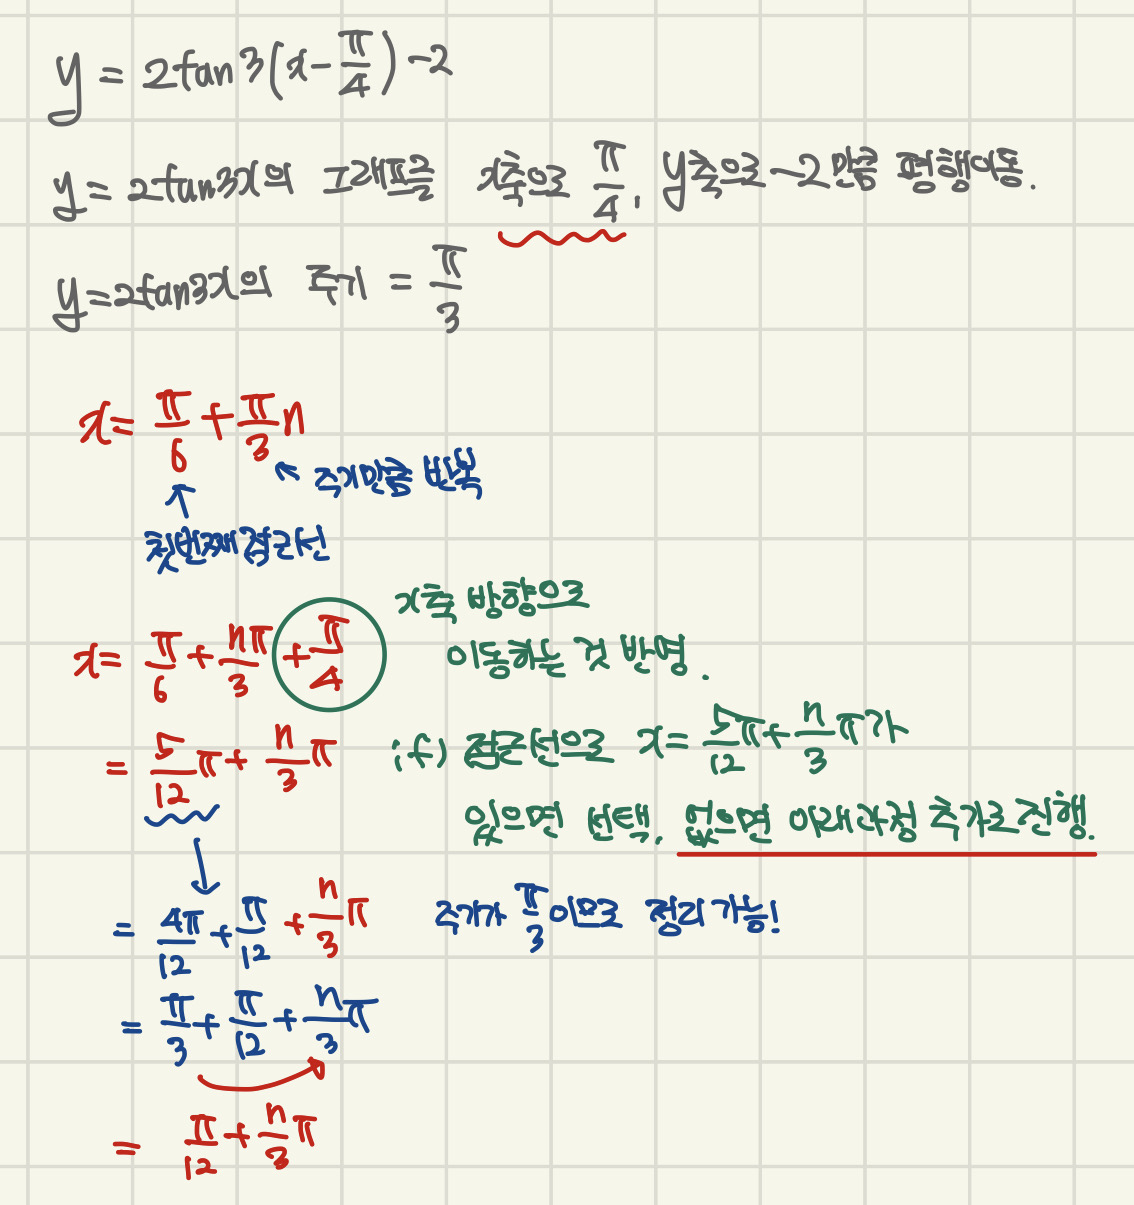 y = 2tan3(x - π/4) - 2
y = 2tan3x의 그래프를 x축으로 π/4, y축으로 -2 만큼 평행이동.
y = 2tan3x의 주기 = π/3
x = π/6 + π/3 n
← 주기만큼 반복
↑
첫번째 점근선
x = π/6 + nπ/3 + π/4
x축 방향으로
이동하는 것 반영.
= 5/12 π + n/3 π
if) 점근선으로 x = 5/12 π + n/3 π가
있으면 선택. 없으면 아래과정 추가로 진행.
= 4π/12 + π/12 + n/3 π
주기가 π/3 이므로 정리 가능!
= π/3 + π/12 + n/3 π
= π/12 + n/3 π